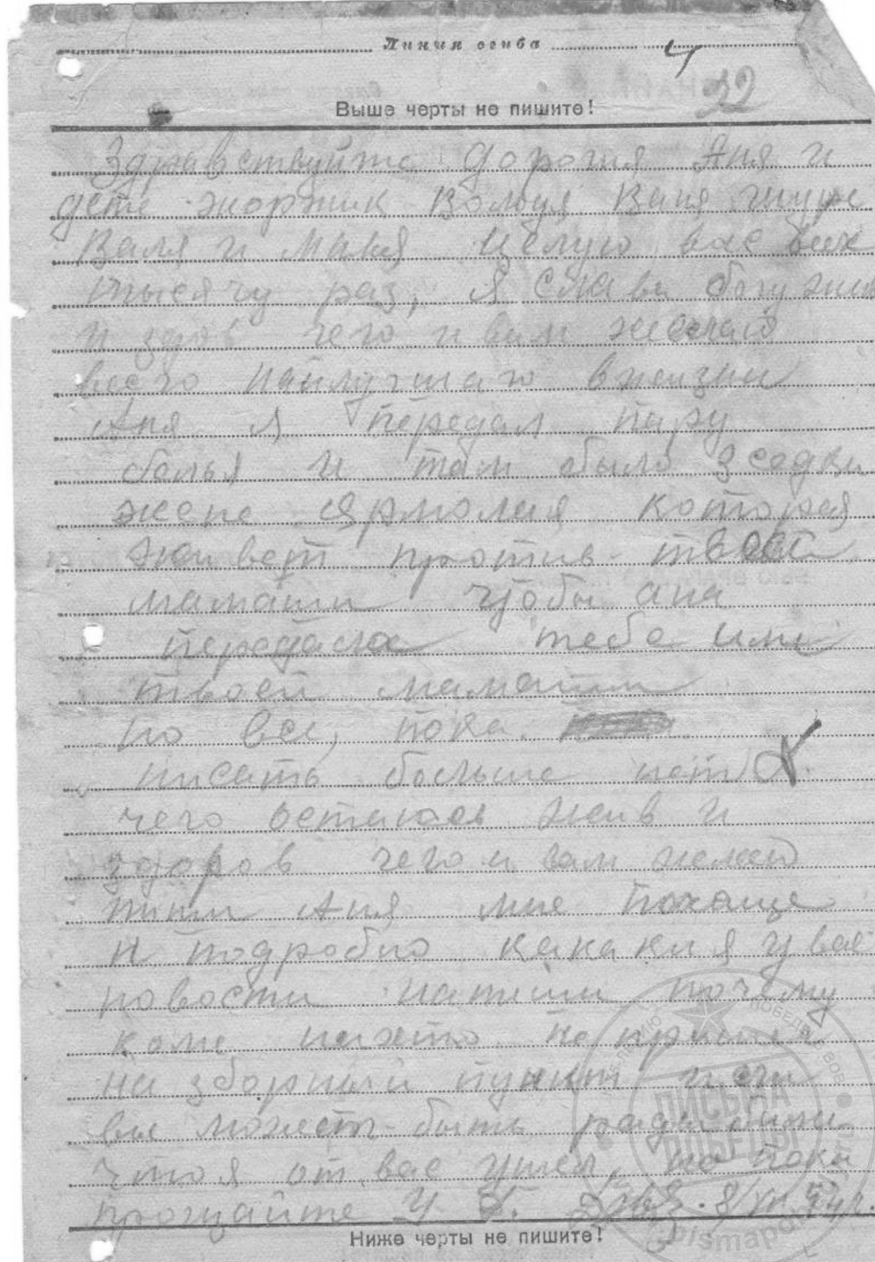 Линия сгиба
4
22
Выше черты не пишите!
Здравствуйте дорогия Аня и
дети жоржик Володя Ваня
Валя и Маня целую вас всех
тысячу раз, я слава богу жив
и здров чего и вам желаю
всего наилучшаго в жизни
Аня я передал пару
белья и там было 3
жене Ярмолая которая
живет против твоей
мамаши чтобы ана
передала тебе или
твоей мамаши
но все, пока.
писать больше нет
чего остаюсь жив и
здоров чего и вам желаю
пиши Аня мне почаще
и подробно кака кия у вас
новости напиши почему
коме нихто не пришел
на зборный пункт или
вы может быть рады были
что я от вас ушел, но пока
прощайте
Ниже черты не пишите!
ПИСЬМА
ПОБЕДЫ
pismapobedy